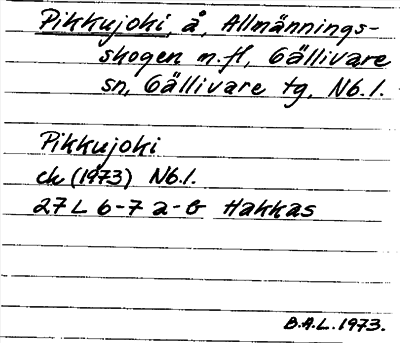 Pikkujoki, å, Allmännings-
skogen m.fl, Gällivare
sn, Gällivare tg, Nb.l.
Pikkujoki
ek (1973) Nb.l.
27 L 6-7 a-b Hakkas
B.A.L. 1973.